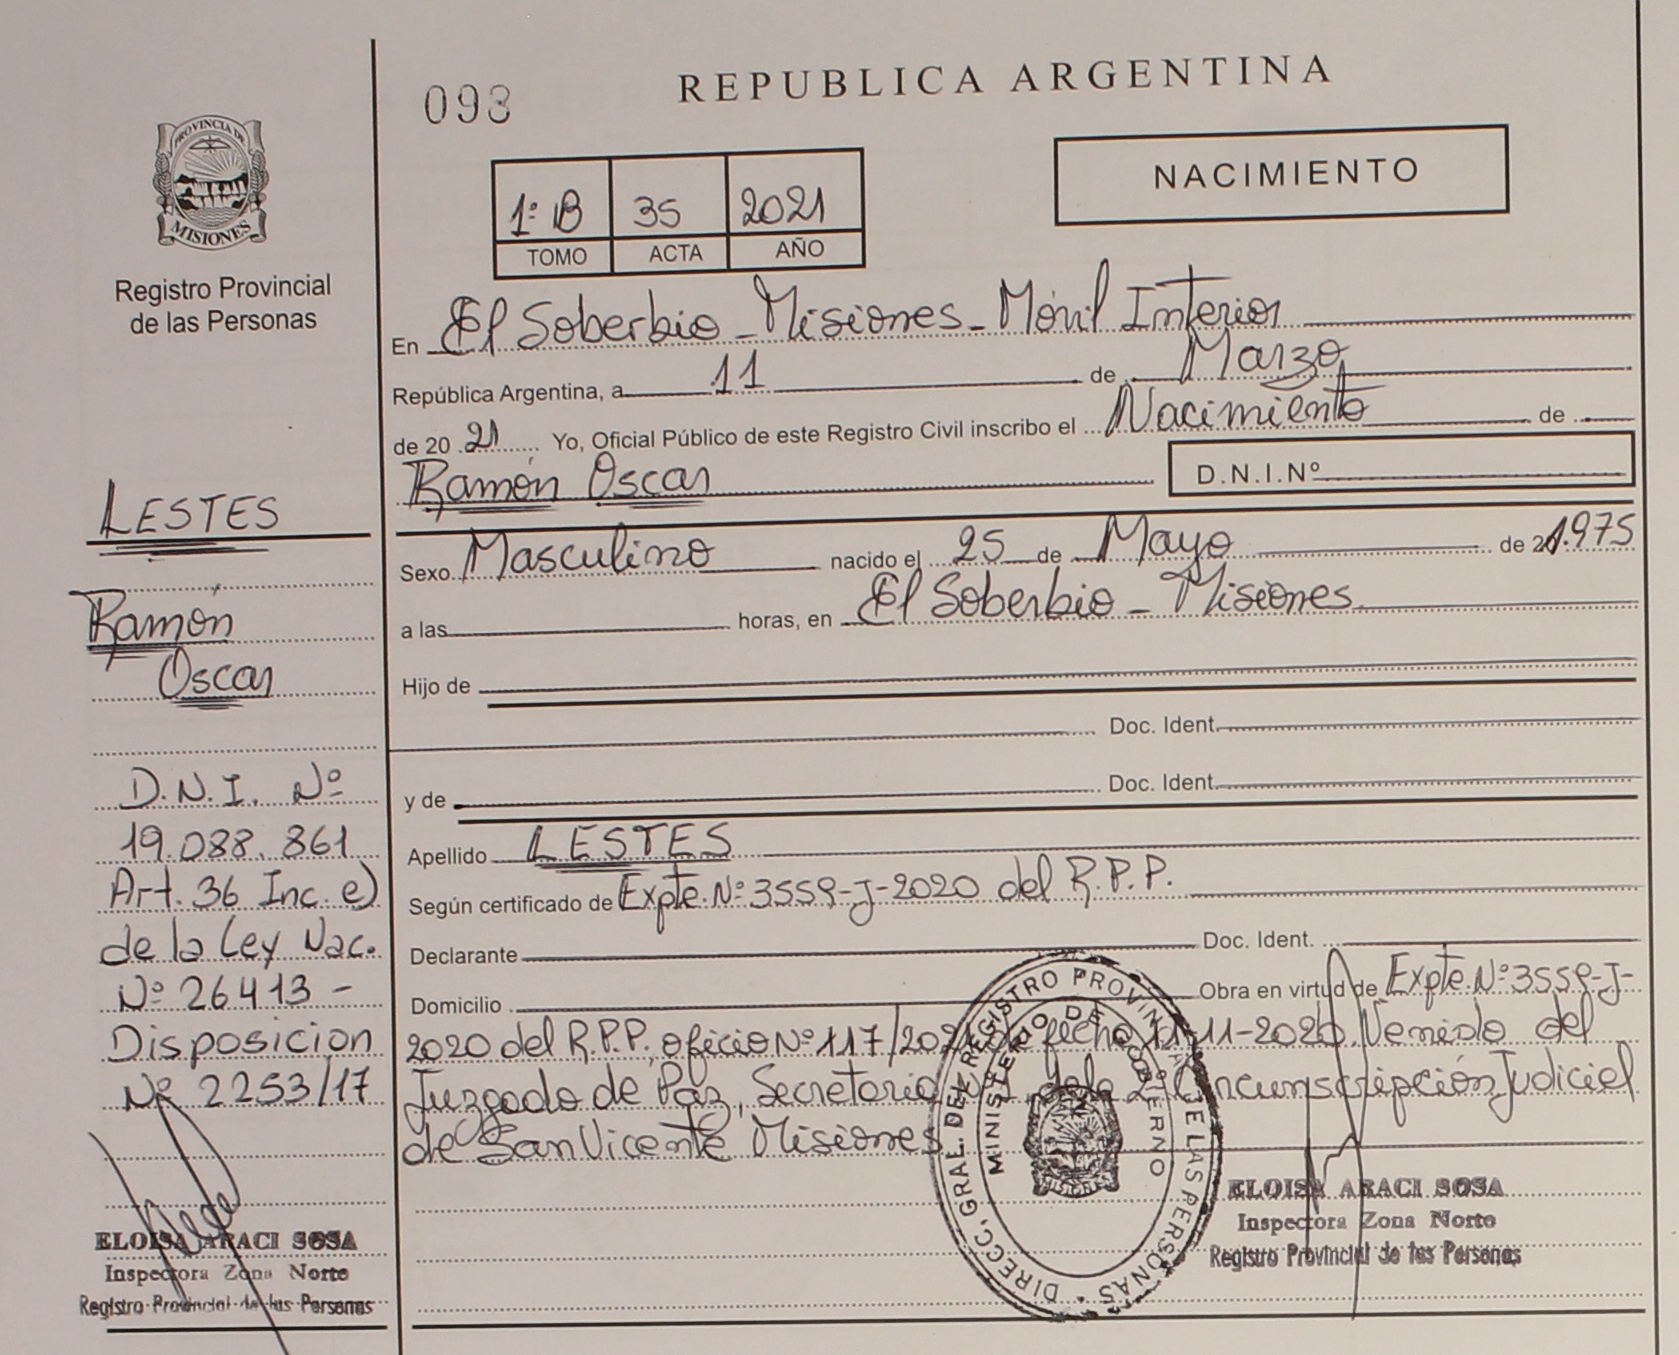 093
REPUBLICA ARGENTINA
PROVINCIA DE MISIONES
Registro Provincial
de las Personas
NACIMIENTO
1º B 35 2021
TOMO ACTA AÑO
En El Soberbio - Misiones - Móvil Interior
República Argentina, a 11 de Marzo
de 20 21 Yo, Oficial Público de este Registro Civil inscribo el Nacimiento de
Ramón Oscar D.N.I.Nº
Sexo Masculino nacido el 25 de Mayo de 1.975
a las horas, en El Soberbio - Misiones
Hijo de
Doc. Ident.
y de Doc. Ident.
Apellido LESTES
Según certificado de Expte. Nº 3559-J-2020 del R.P.P.
Declarante Doc. Ident.
Domicilio Obra en virtud de Expte. Nº 3559-J-
2020 del R.P.P, oficio Nº 117/2020 de fecha 11-11-2020. Venido del
Juzgado de Paz, Secretaria de la 2 Circunscripción Judicial
de San Vicente Misiones
LESTES
Ramón
Oscar
D.N.I. Nº
19.088.861
Art. 36 Inc. e)
de la Ley Nac.
Nº 26413 -
Disposicion
Nº 2253/17
ELOISA ARACI SOSA
Inspectora Zona Norte
Registro Provincial de las Personas
DIRECC. GRAL. DEL REGISTRO PROVINCIAL DE LAS PERSONAS
MINISTERIO DE GOBIERNO
MISIONES
ELOISA ARACI SOSA
Inspectora Zona Norte
Registro Provincial de las Personas